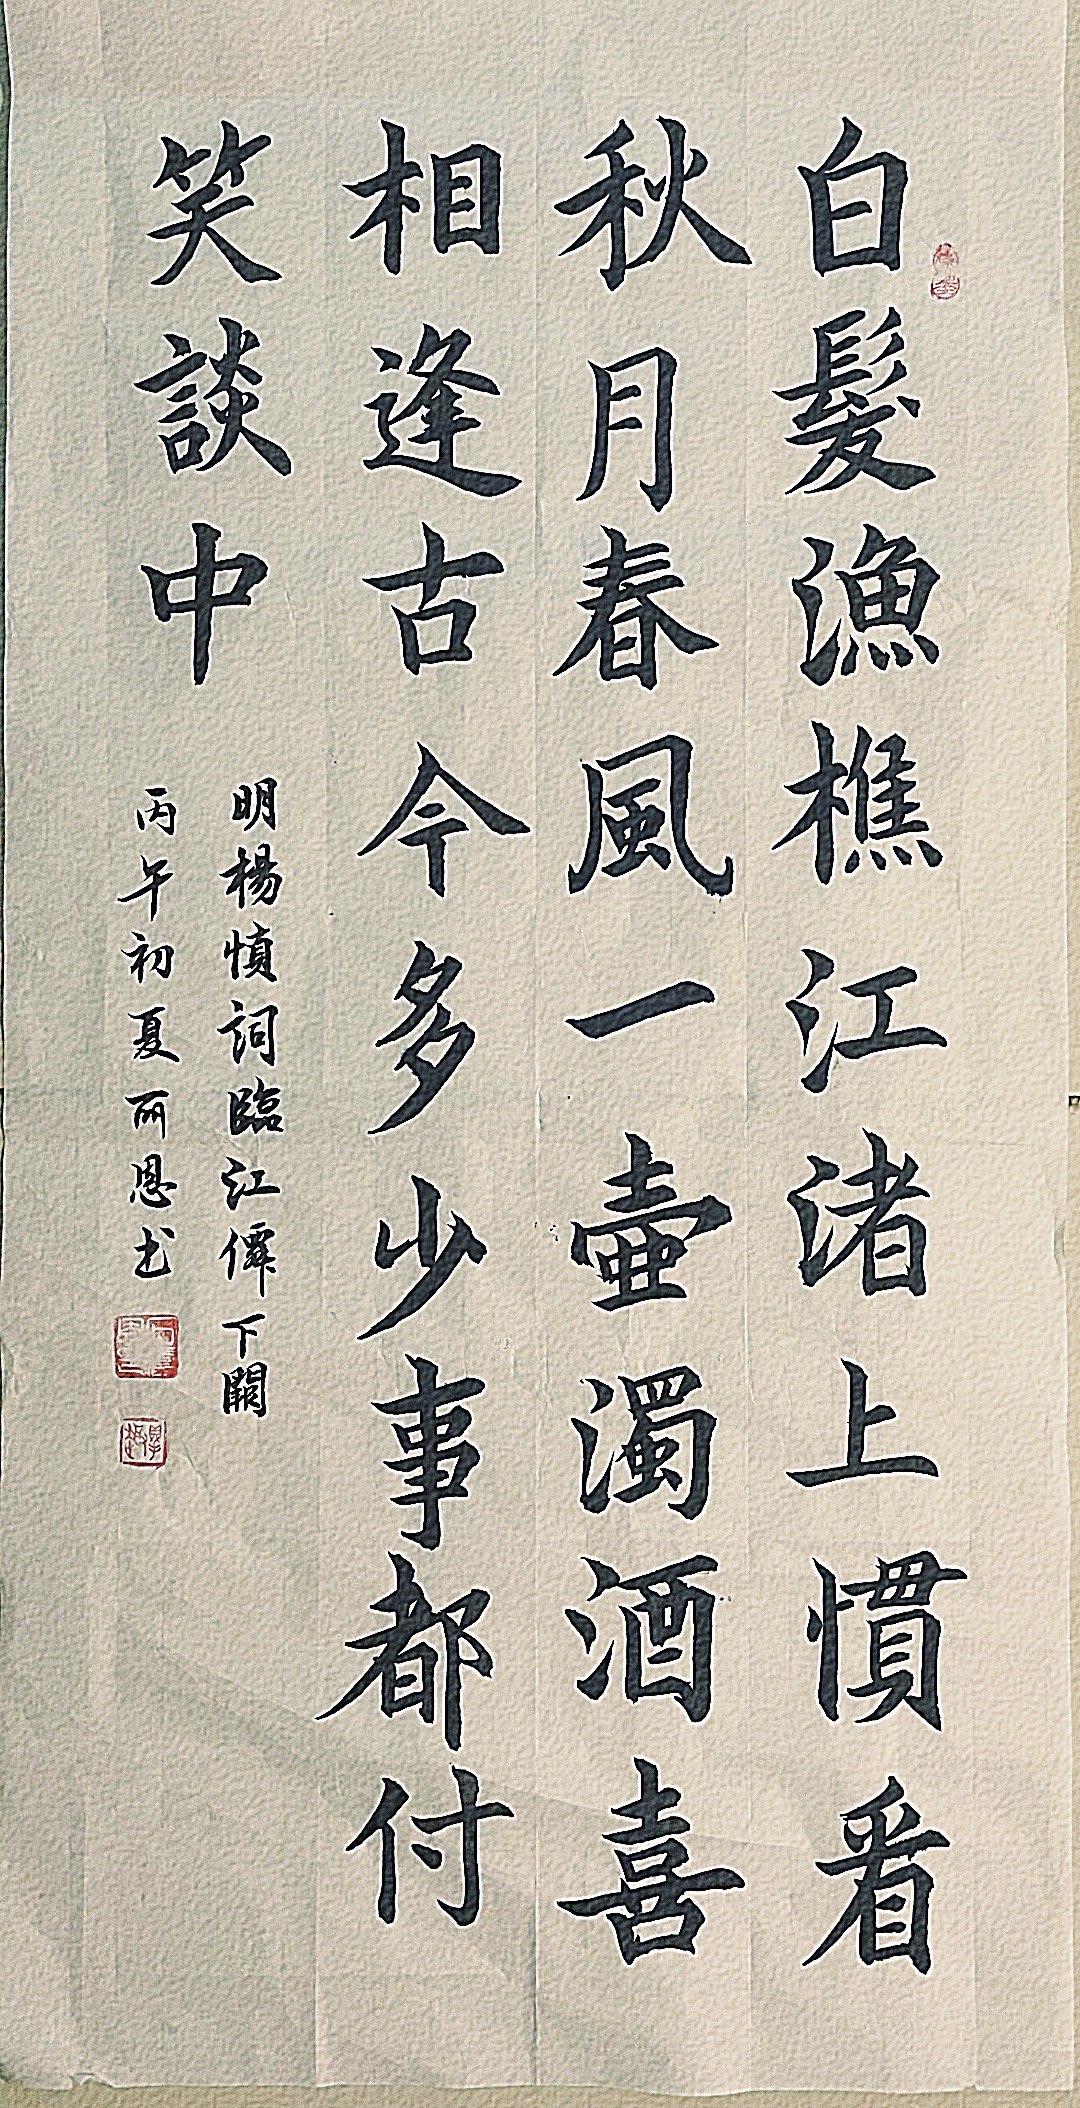 白髮漁樵江渚上慣看
秋月春風一壺濁酒喜
相逢古今多少事都付
笑談中
明楊慎詞臨江僊下闋
丙午初夏丽恩书